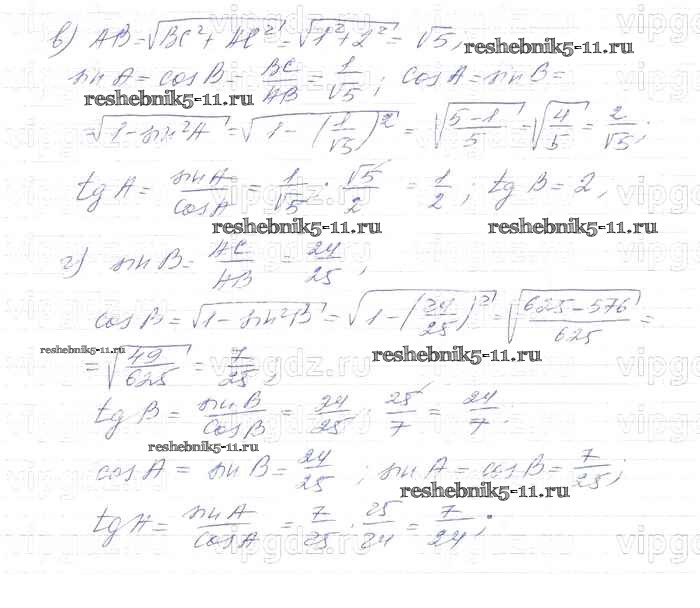 в) AB = √(BC² + AC²) = √(1² + 2²) = √5,
reshebnik5-11.ru
sin A = cos B = BC/AB = 1/√5; cos A = sin B =
reshebnik5-11.ru
= √(1 - sin²A) = √(1 - (1/√5)²) = √((5-1)/5) = √(4/5) = 2/√5;
tg A = sin A/cos A = 1/√5 · √5/2 = 1/2; tg B = 2,
reshebnik5-11.ru reshebnik5-11.ru
г) sin B = AC/AB = 24/25;
cos B = √(1 - sin²B) = √(1 - (24/25)²) = √((625-576)/625) =
reshebnik5-11.ru reshebnik5-11.ru
= √(49/625) = 7/25,
tg B = sin B/cos B = 24/25 · 25/7 = 24/7.
reshebnik5-11.ru
cos A = sin B = 24/25; sin A = cos B = 7/25;
reshebnik5-11.ru
tg A = sin A/cos A = 7/25 · 25/24 = 7/24;
vipgdz.ru